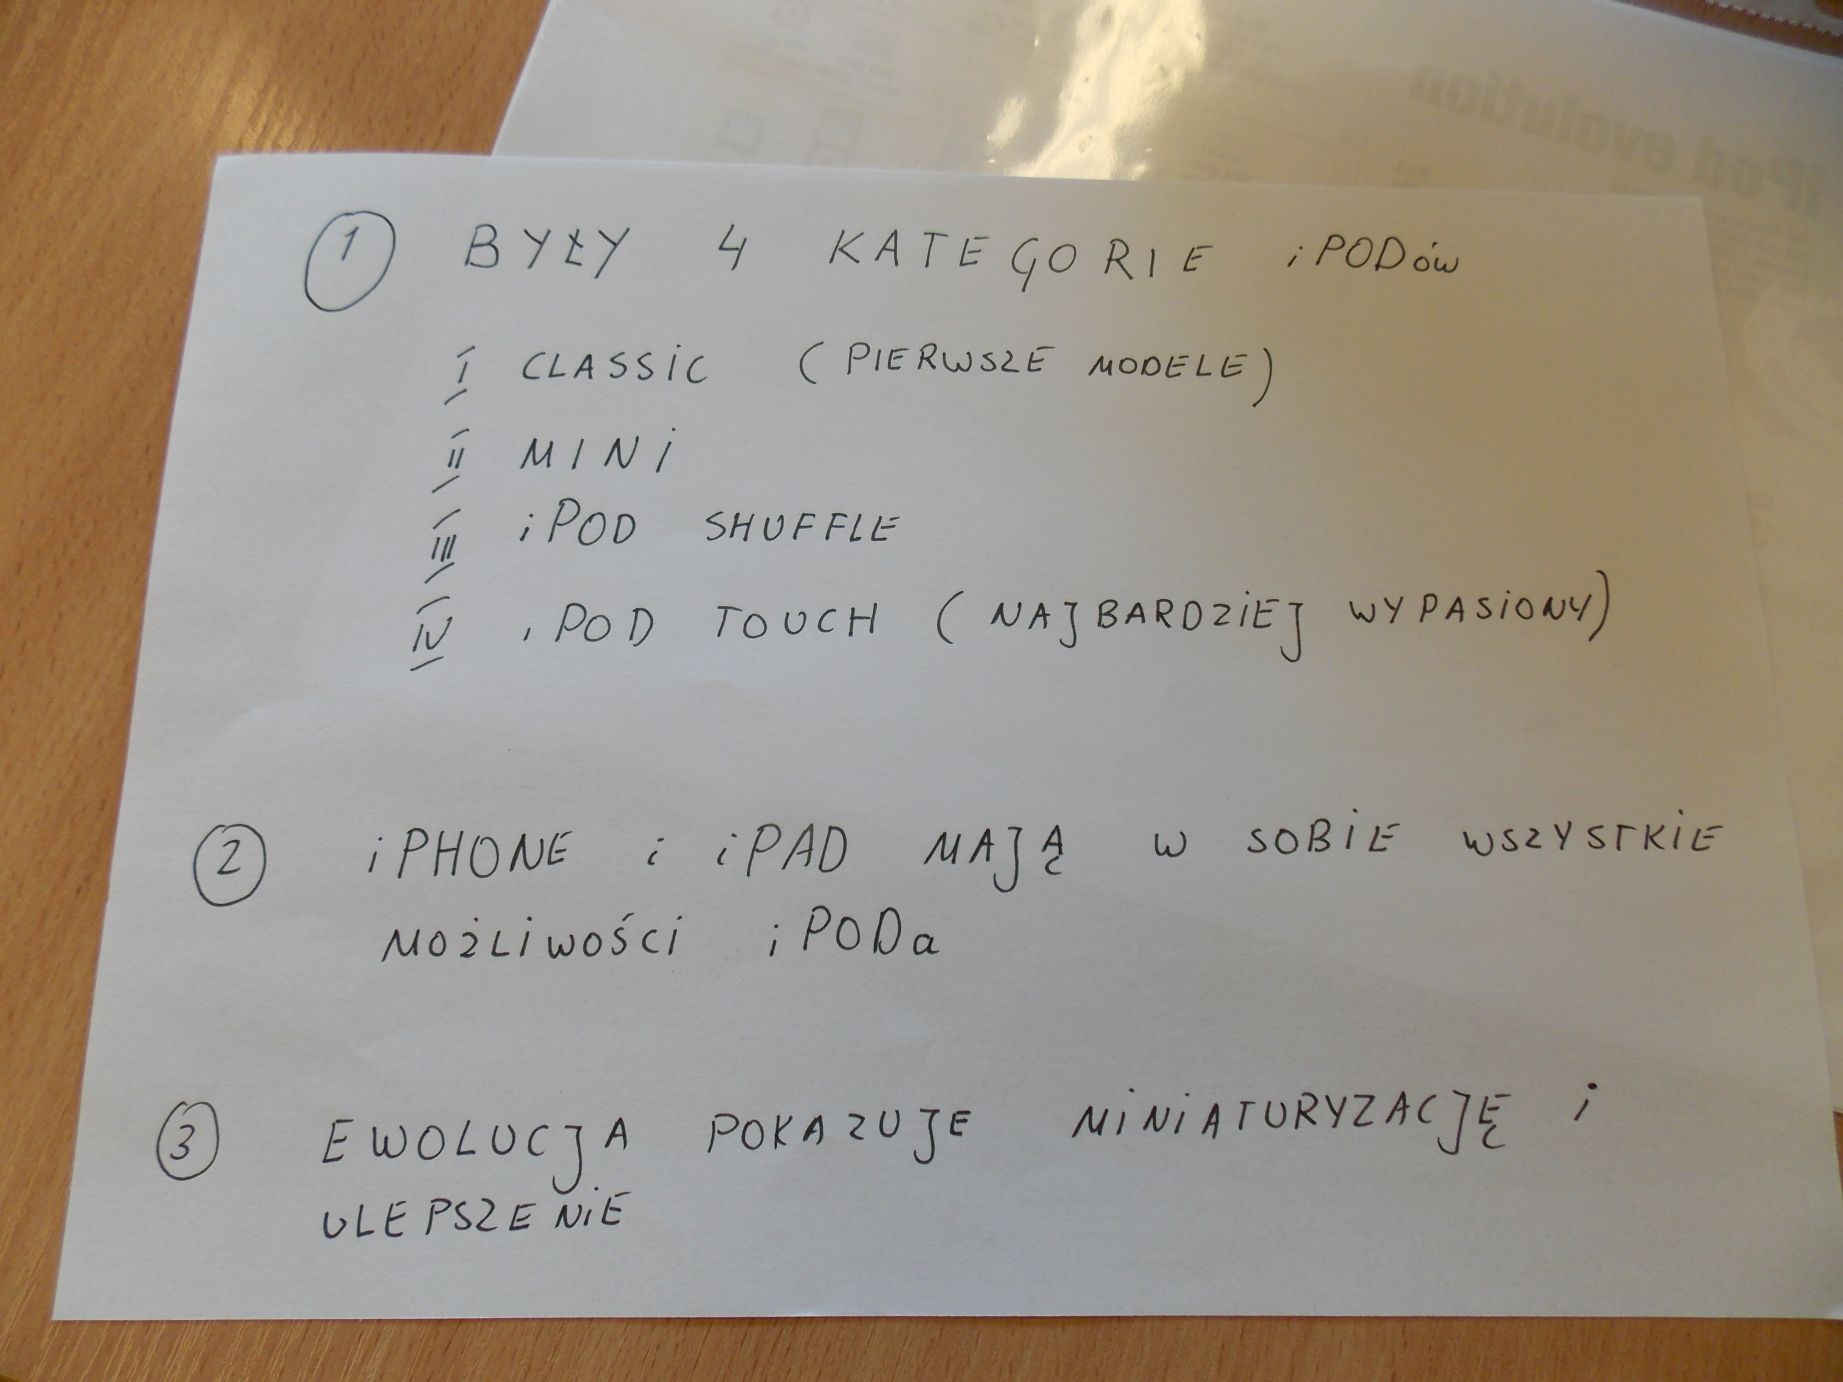 iPod evolution
1 BYŁY 4 KATEGORIE iPODów
I CLASSiC (PIERWSZE MODELE)
II MINi
III iPOD SHUFFLE
IV iPOD TOUCH (NAJBARDZiEJ WYPASiONY)
2 iPHONE i iPAD MAJĄ W SOBiE WSZYSTKiE
MOŻLiWOŚCi iPODa
3 EWOLUCJA POKAZUJE MiNiATURYZACJĘ i
ULEPSZENiE